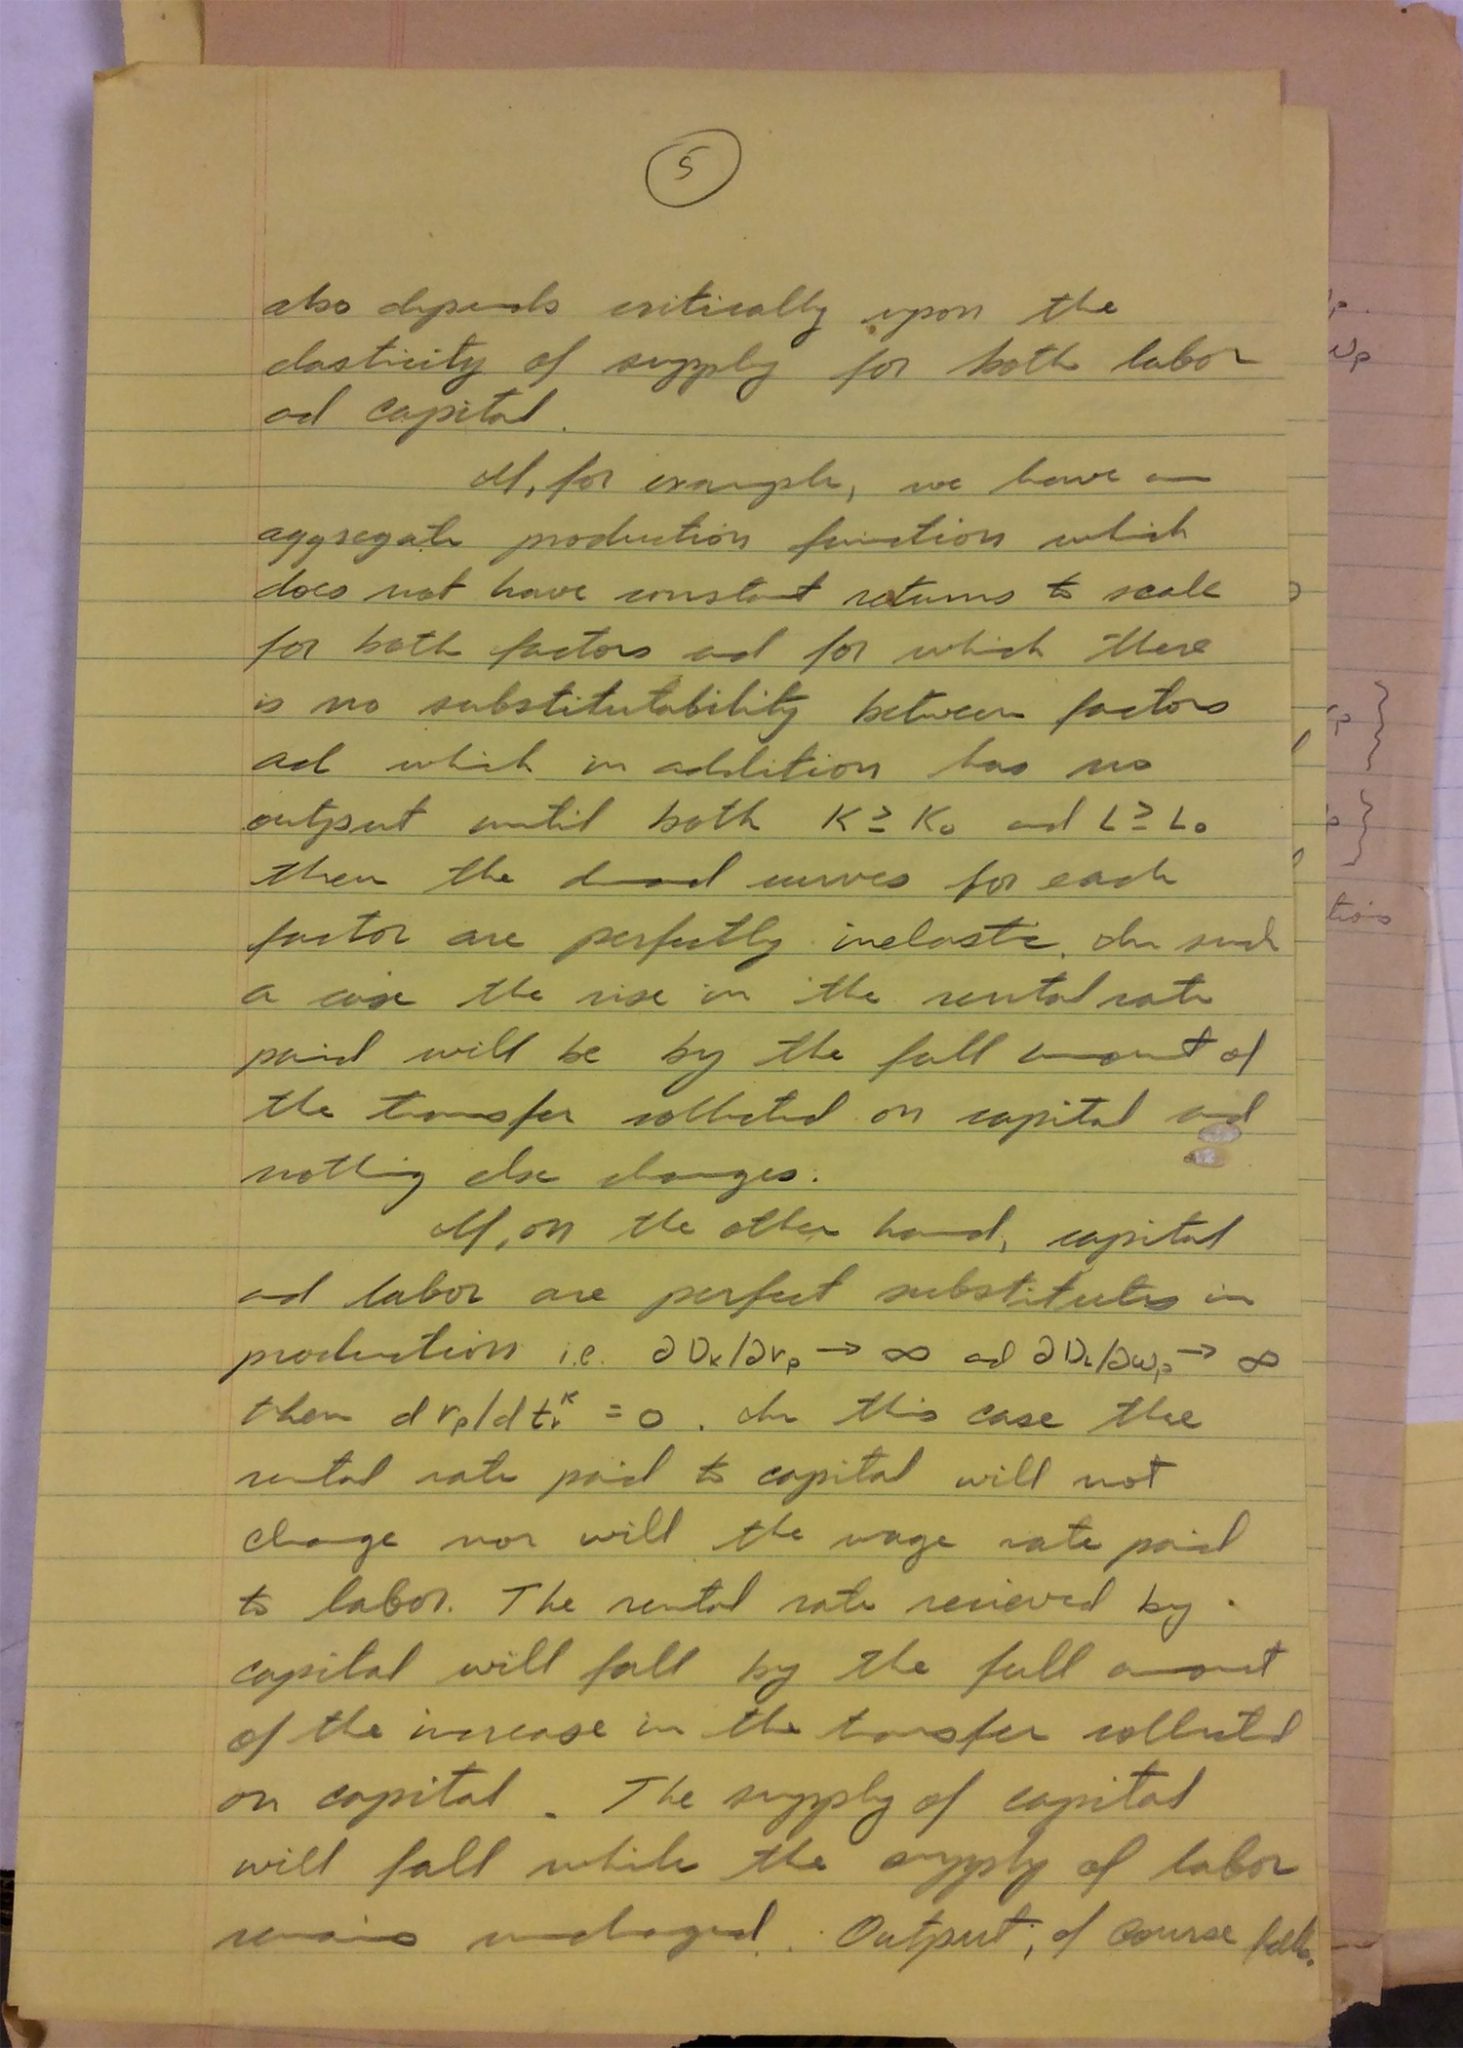 5
also depends critically upon the
elasticity of supply for both labor
and capital.
If, for example, we have an
aggregate production function which
does not have constant returns to scale
for both factors and for which there
is no substitutability between factors
and which in addition has no
output until both K ≥ K₀ and L ≥ L₀
then the demand curves for each
factor are perfectly inelastic. In such
a case the rise in the rental rate
paid will be by the full amount of
the transfer collected on capital and
nothing else changes.
If, on the other hand, capital
and labor are perfect substitutes in
production i.e. ∂Dₖ/∂rₚ → ∞ and ∂D_L/∂wₚ → ∞
then drₚ/dtᵣᴷ = 0. In this case the
rental rate paid to capital will not
change nor will the wage rate paid
to labor. The rental rate recieved by
capital will fall by the full amount
of the increase in the transfer collected
on capital. The supply of capital
will fall while the supply of labor
remains unchanged. Output, of course falls.
wₚ
tions